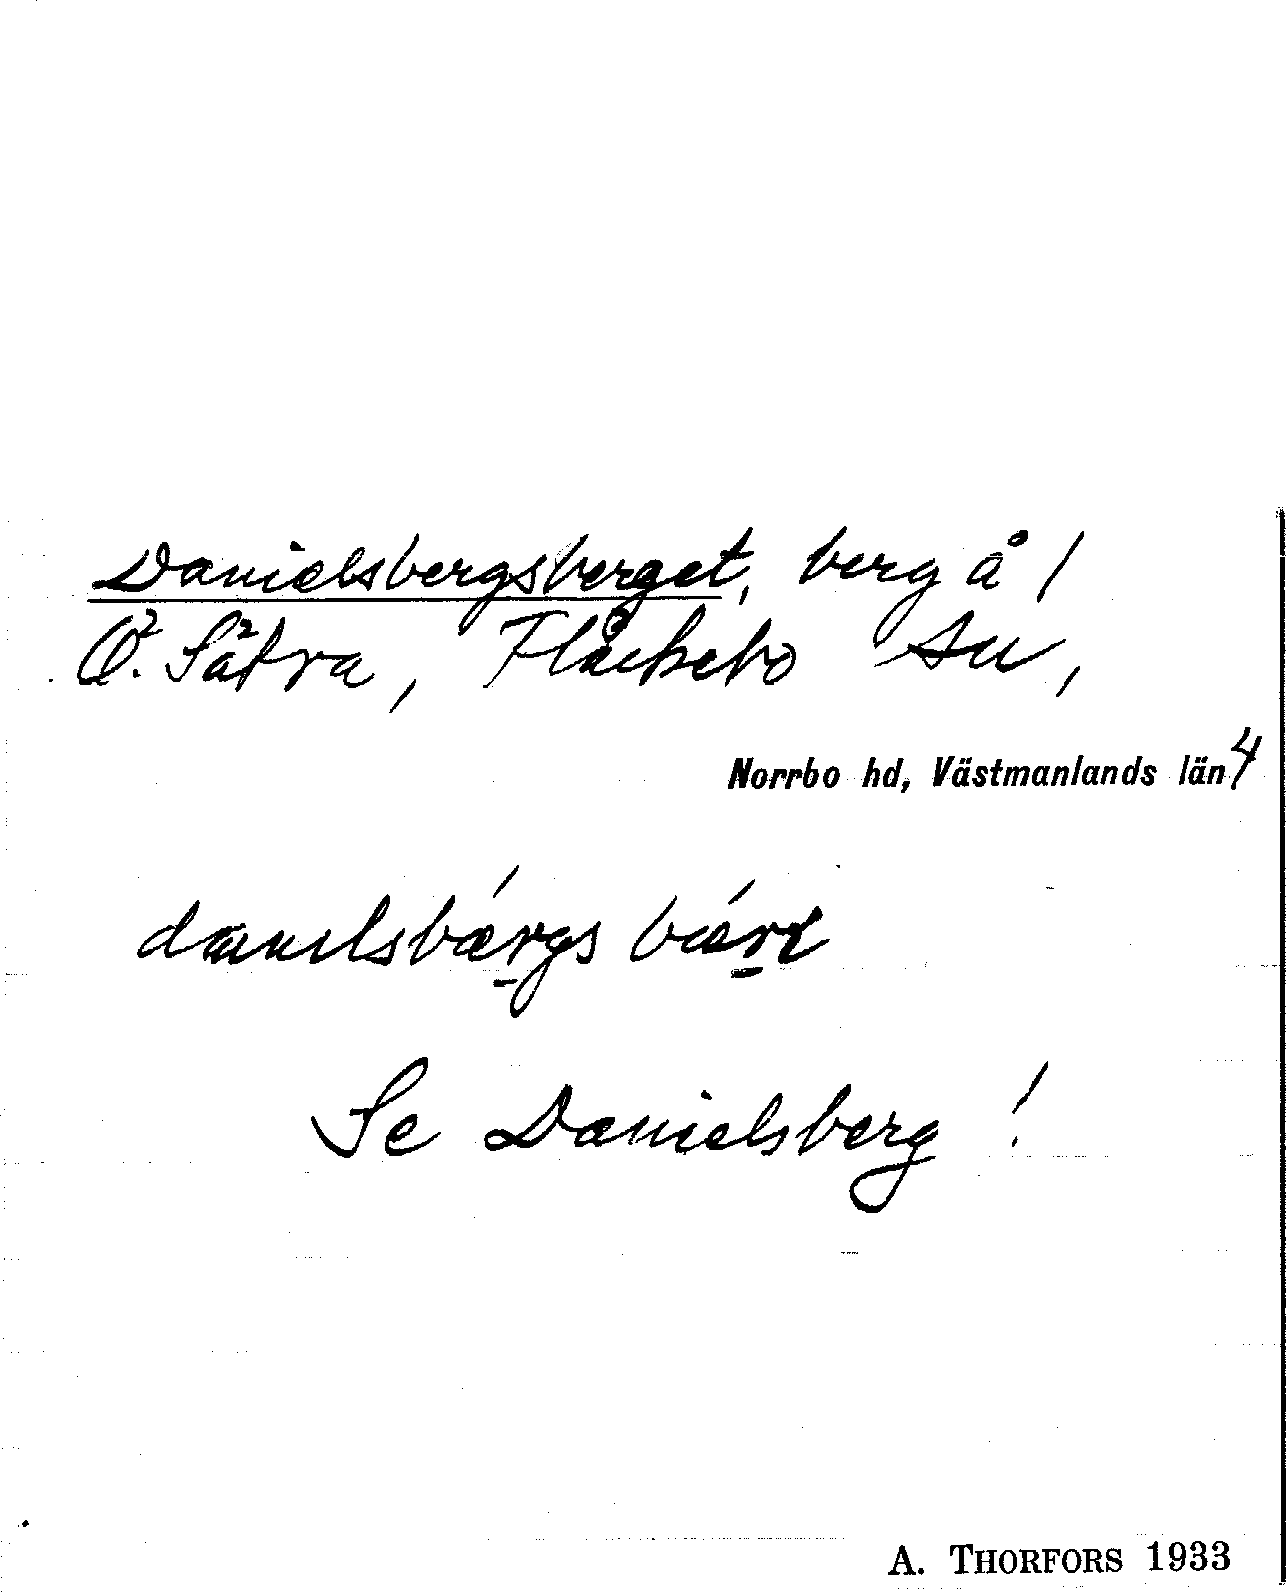 Danielsbergsberget, berg å /
Ö. Sätra, Fläckebo sn,
Norrbo hd, Västmanlands län 4
Se Danielsberg !
A. THORFORS 1933